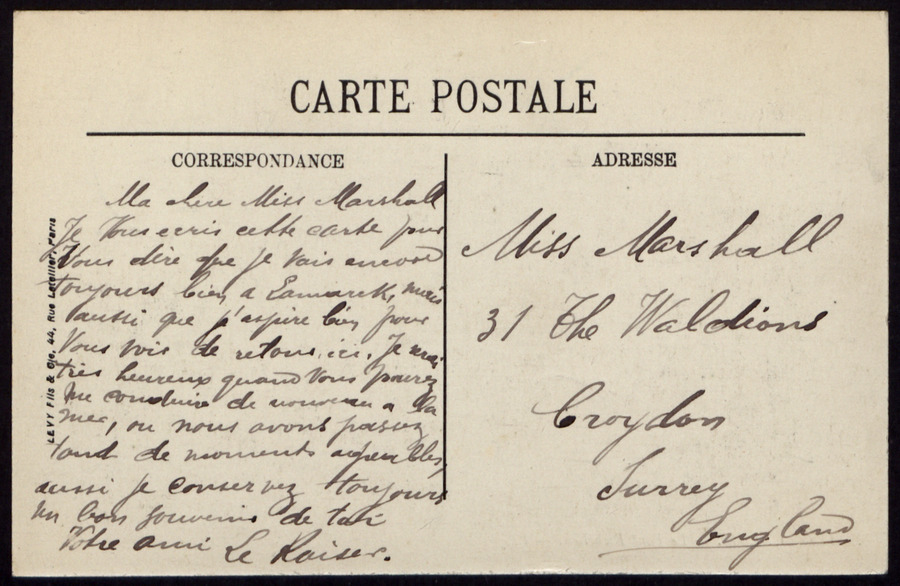 CARTE POSTALE
CORRESPONDANCE
ADRESSE
Ma chère Miss Marshall
Je Vous ecris cette carte pour
Vous dire que je vais encore
toujours bien, a Lamarck, mais
aussi que j'aspire bien pour
Vous voir de retour ici. Je
très heureux quand Vous pourez
me conduire de nouveau a la
mer, ou nous avons passez
tant de moments agreables,
aussi je conservez toujours
un bon souvenir de toi
Votre ami Le Kaiser.
LEVY Fils & Cie, 44, Rue Letellier, Paris
Miss Marshall
31 The Waldrons
Croydon
Surrey
England